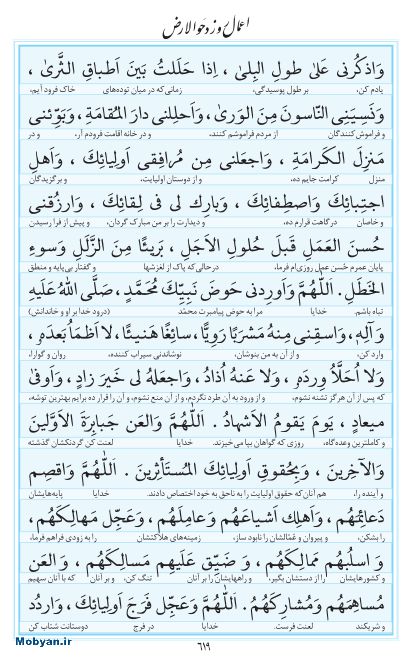 اعمال روز دحوالارض
وَاذكُرنى عَلىٰ طولِ البِلىٰ ، اِذا حَلَلتُ بَينَ اَطباقِ الثَّرىٰ ،
یادم کن، بر طول پوسیدگی، زمانی‌که در میان توده‌های خاک فرود آیم،
وَنَسِيَنِى النّاسونَ مِنَ الوَرىٰ، وَاَحلِلنى دارَ المُقامَةِ، وَبَوِّئنى
و فراموش کنندگان از مردم فراموشم کنند، و در خانه اقامت فرودم آر، و در
مَنزِلَ الكَرامَةِ ، وَاجعَلنى مِن مُرافِقى اَولِيائِكَ ، وَاَهلِ
منزل کرامت جایم ده، و از دوستان اولیایت، و برگزیدگان
اجتِبائِكَ وَاصطِفائِكَ ، وَبارِك لى فى لِقائِكَ ، وَارزُقنى
و خاصان درگاهت قرارم ده، و دیدارت را بر من مبارک گردان، و پیش از فرا رسیدن
حُسنَ العَمَلِ قَبلَ حُلولِ الاَجَلِ ، بَريئًا مِنَ الزَّلَلِ وَسوءِ
پایان عمرم حُسن عمل روزی‌ام فرما، درحالی‌که پاک از لغزشها و گفتار بی‌پایه و منطق
الخَطَلِ . اَللّٰهُمَّ وَاَورِدنى حَوضَ نَبِيِّكَ مُحَمَّدٍ , صَلَّى اللهُ عَلَيهِ
تباه باشم. خدایا مرا به حوض پیامبرت محمّد (درود خدا بر او و خاندانش)
وَآلِهِ، وَاسقِنى مِنهُ مَشرَبًا رَويًّا، سائِغًا هَنيئًا، لا اَظمَأُ بَعدَهُ ،
وارد کن، و از آن به من بنوشان، نوشاندنی سیراب کننده، روان و گوارا،
وَلا اُحَلَّأُ وِردَهُ ، وَلا عَنهُ اُذادُ ، وَاجعَلهُ لى خَيرَ زادٍ ، وَاَوفىٰ
که پس از آن هرگز تشنه نشوم، و از ورود به آن طرد نگردم، و از آن منع نشوم، و آن را قرار ده برایم بهترین توشه،
ميعادٍ ، يَومَ يَقومُ الاَشهادُ . اَللّٰهُمَّ وَالعَن جَبابِرَةَ الاَوَّلينَ
و کاملترین وعده‌گاه، روزی که گواهان بپا می‌خیزند. خدایا لعنت کن گردنکشان گذشته
وَالآخِرينَ ، وَبِحُقوقِ اَولِيائِكَ المُستَأثِرينَ . اَللّٰهُمَّ وَاقصِم
و آینده را، هم آنان‌که حقوق اولیایت را به ناحق به خود اختصاص دادند. خدایا پایه‌هایشان
دَعائِمَهُم ، وَاَهلِك اَشياعَهُم وَعامِلَهُم ، وَعَجِّل مَهالِكَهُم ،
را بشکن، و پیروان و عمّالشان را نابود ساز، زمینه‌های هلاکتشان را به زودی فراهم فرما،
وَ اسلُبهُم مَمالِكَهُم ، وَ ضَيِّق عَلَيهِم مَسالِكَهُم ، وَالعَن
و کشورهایشان را از دستشان بگیر، و راههایشان را بر آنان تنگ کن، و بر آنان که با آنان سهیم
مُساهِمَهُم وَمُشارِكَهُم . اَللّٰهُمَّ وَعَجِّل فَرَجَ اَولِيائِكَ، وَاردُد
و شریکند لعنت فرست. خدایا در فرج دوستانت شتاب کن
۶۱۹
Mobyan.ir